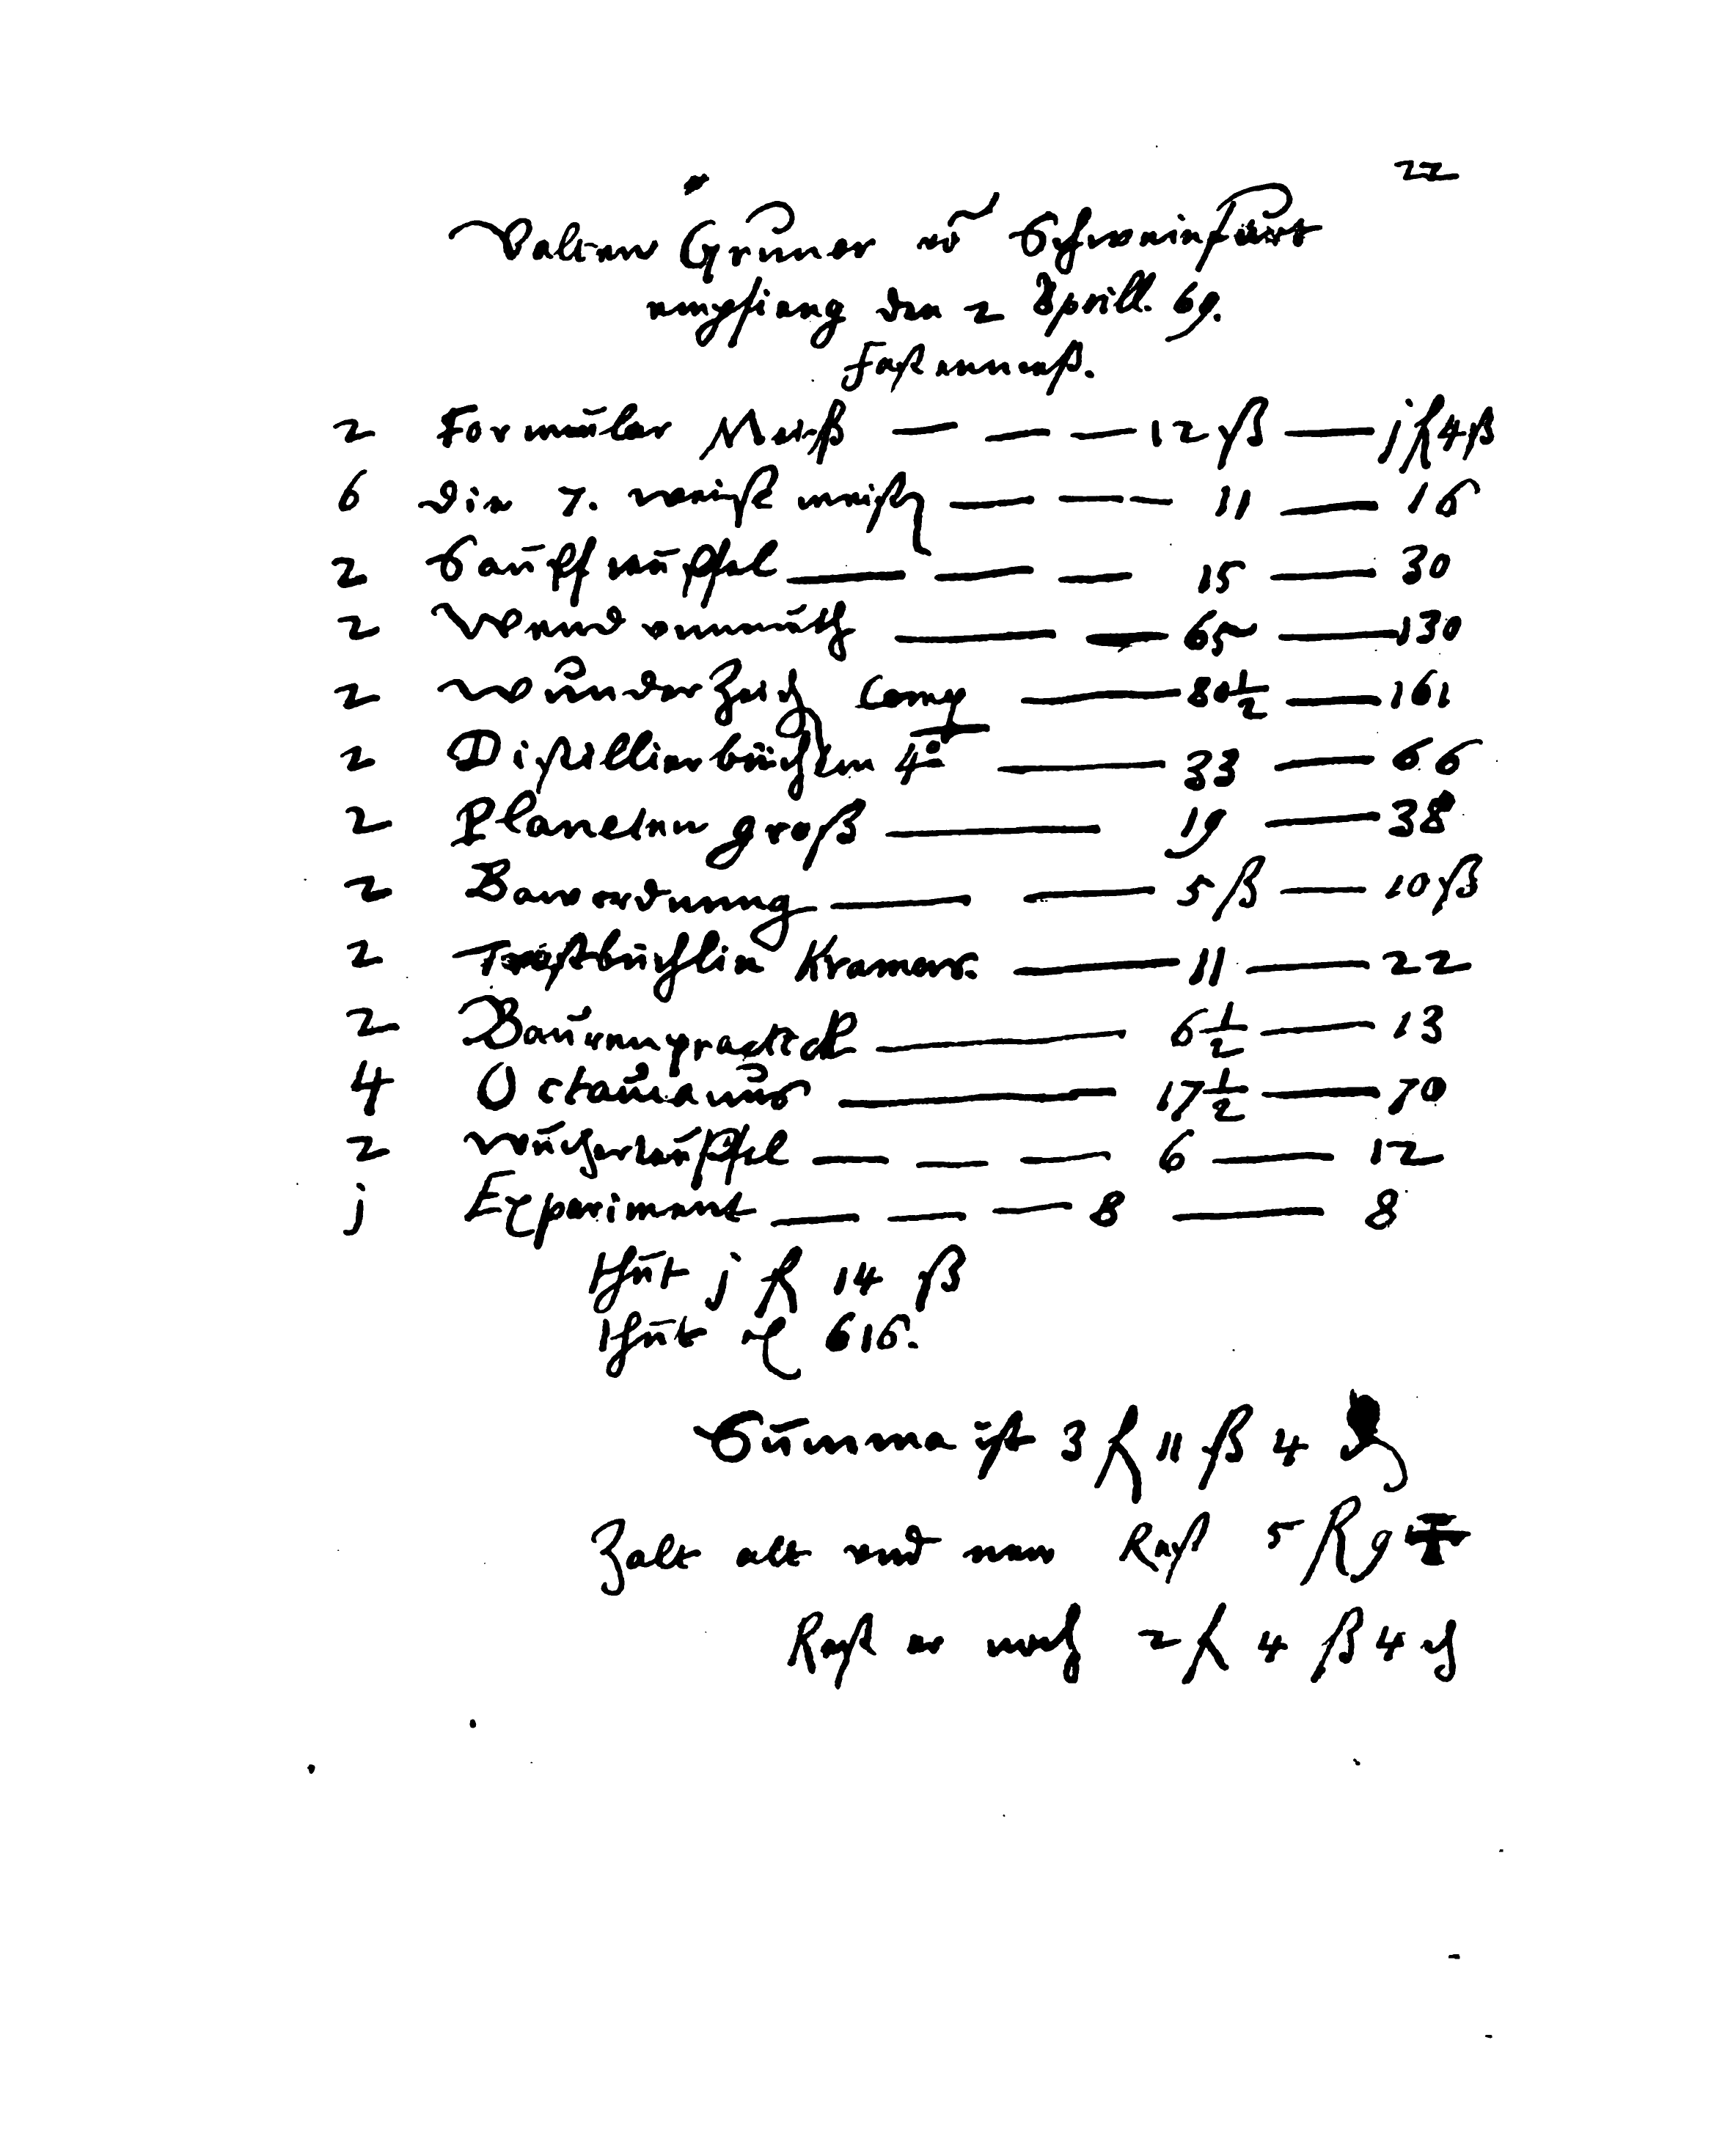 22
Valten Gruner vō Schweinfurt
empfieng den 2 Aprill. 69.
Fastenmeß.
2 Formular Meiß — — — 12 ß — j fl 4 ß
6 die 7. weise meister — — — 11 — 16
2 Sauffteuffel — — — 15 — 30
2 Wendvnmuth — — 65 — 130
2 wunderzeich Comp — 80½ — 161
2 Distillierbüchlin 4° — 33 — 66
2 Planeten groß — 19 — 38
2 Bawordnung — — 5 ß — 10 ß
2 Trostbüchlin Kramers. — 11 — 22
2 Baurenpractick — 6½ — 13
4 Octauianus — 17½ — 70
2 wucherteuffel — — — 6 — 12
j Experiment — — — 8 — 8
thut j fl 14 ß
thut 616.
Summa ist 3 fl 11 ß 4
Zalt alt vnd new Rest 5 fl 9
Rest er noch 2 fl 4 ß 4